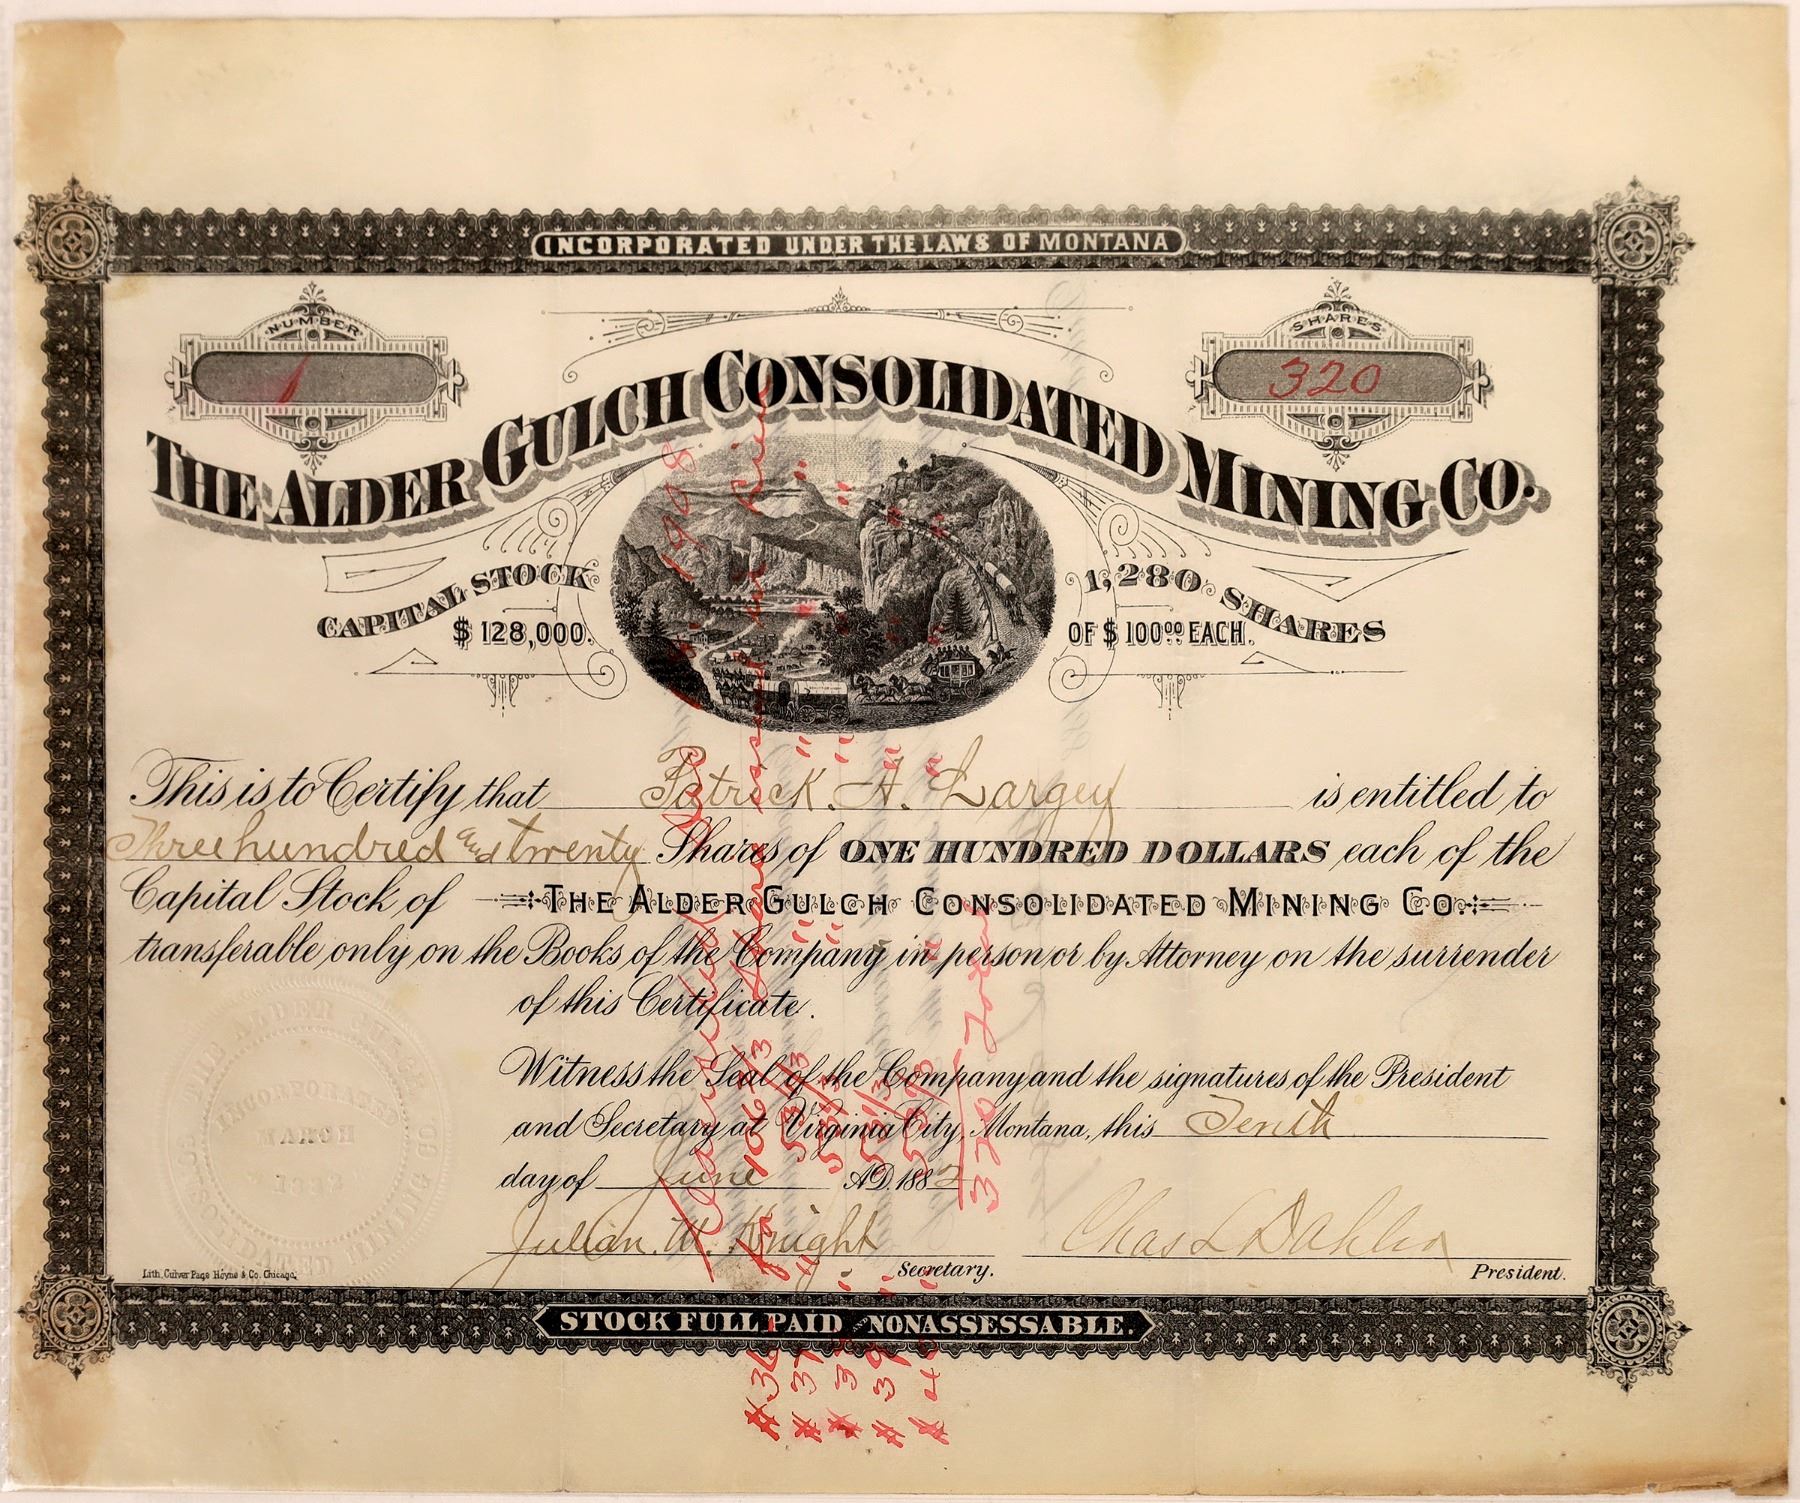 INCORPORATED UNDER THE LAWS OF MONTANA
NUMBER
1
SHARES
320
THE ALDER GULCH CONSOLIDATED MINING CO.
CAPITAL STOCK
$ 128,000.
1,280 SHARES
OF $ 100.00 EACH.
This is to Certify that Patrick. A. Largey is entitled to
Three hundred and twenty Shares of ONE HUNDRED DOLLARS each of the
Capital Stock of THE ALDER GULCH CONSOLIDATED MINING CO.
transferable only on the Books of the Company in person or by Attorney on the surrender
of this Certificate.
Witness the Seal of the Company and the signatures of the President
and Secretary at Virginia City, Montana, this Tenth
day of June A.D. 1882
Julian. W. Knight
Secretary.
Chas L Dahler
President.
THE ALDER GULCH CONSOLIDATED MINING CO
INCORPORATED
MARCH
1882
Lith. Culver Page Hoyne & Co. Chicago.
STOCK FULL PAID AND NONASSESSABLE.
1908
# 36 for 106 2/3
# 37 " 53 1/3 " " "
# 38 " 53 1/3 " " "
# 39 " 53 1/3 " " "
# 40 " 53 1/3 " " "
320 Total